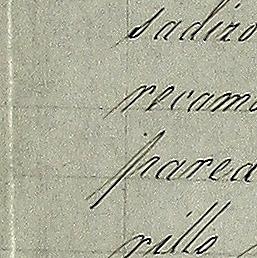 sadizo
recamo
pared
rillo